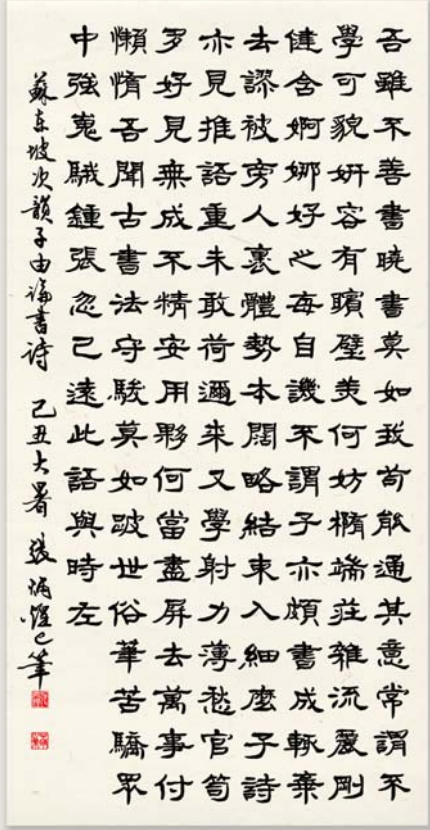 吾雖不善書曉書莫如我苟能通其意常謂不
學可貌妍容有矉璧美何妨橢端莊雜流麗剛
健含婀娜好之每自譏不謂子亦頗書成輒棄
去謬被旁人裹體勢本闊略結束入細麼子詩
亦見推語重未敢荷邇來又學射力薄愁官笴
多好見無成不精安用夥何當盡屏去萬事付
懶惰吾聞古書法守駿莫如跛世俗筆苦驕眾
中強嵬騀鍾張忽已遠此語與時左
蘇東坡次韻子由論書詩 己丑大暑 張炳煌 筆